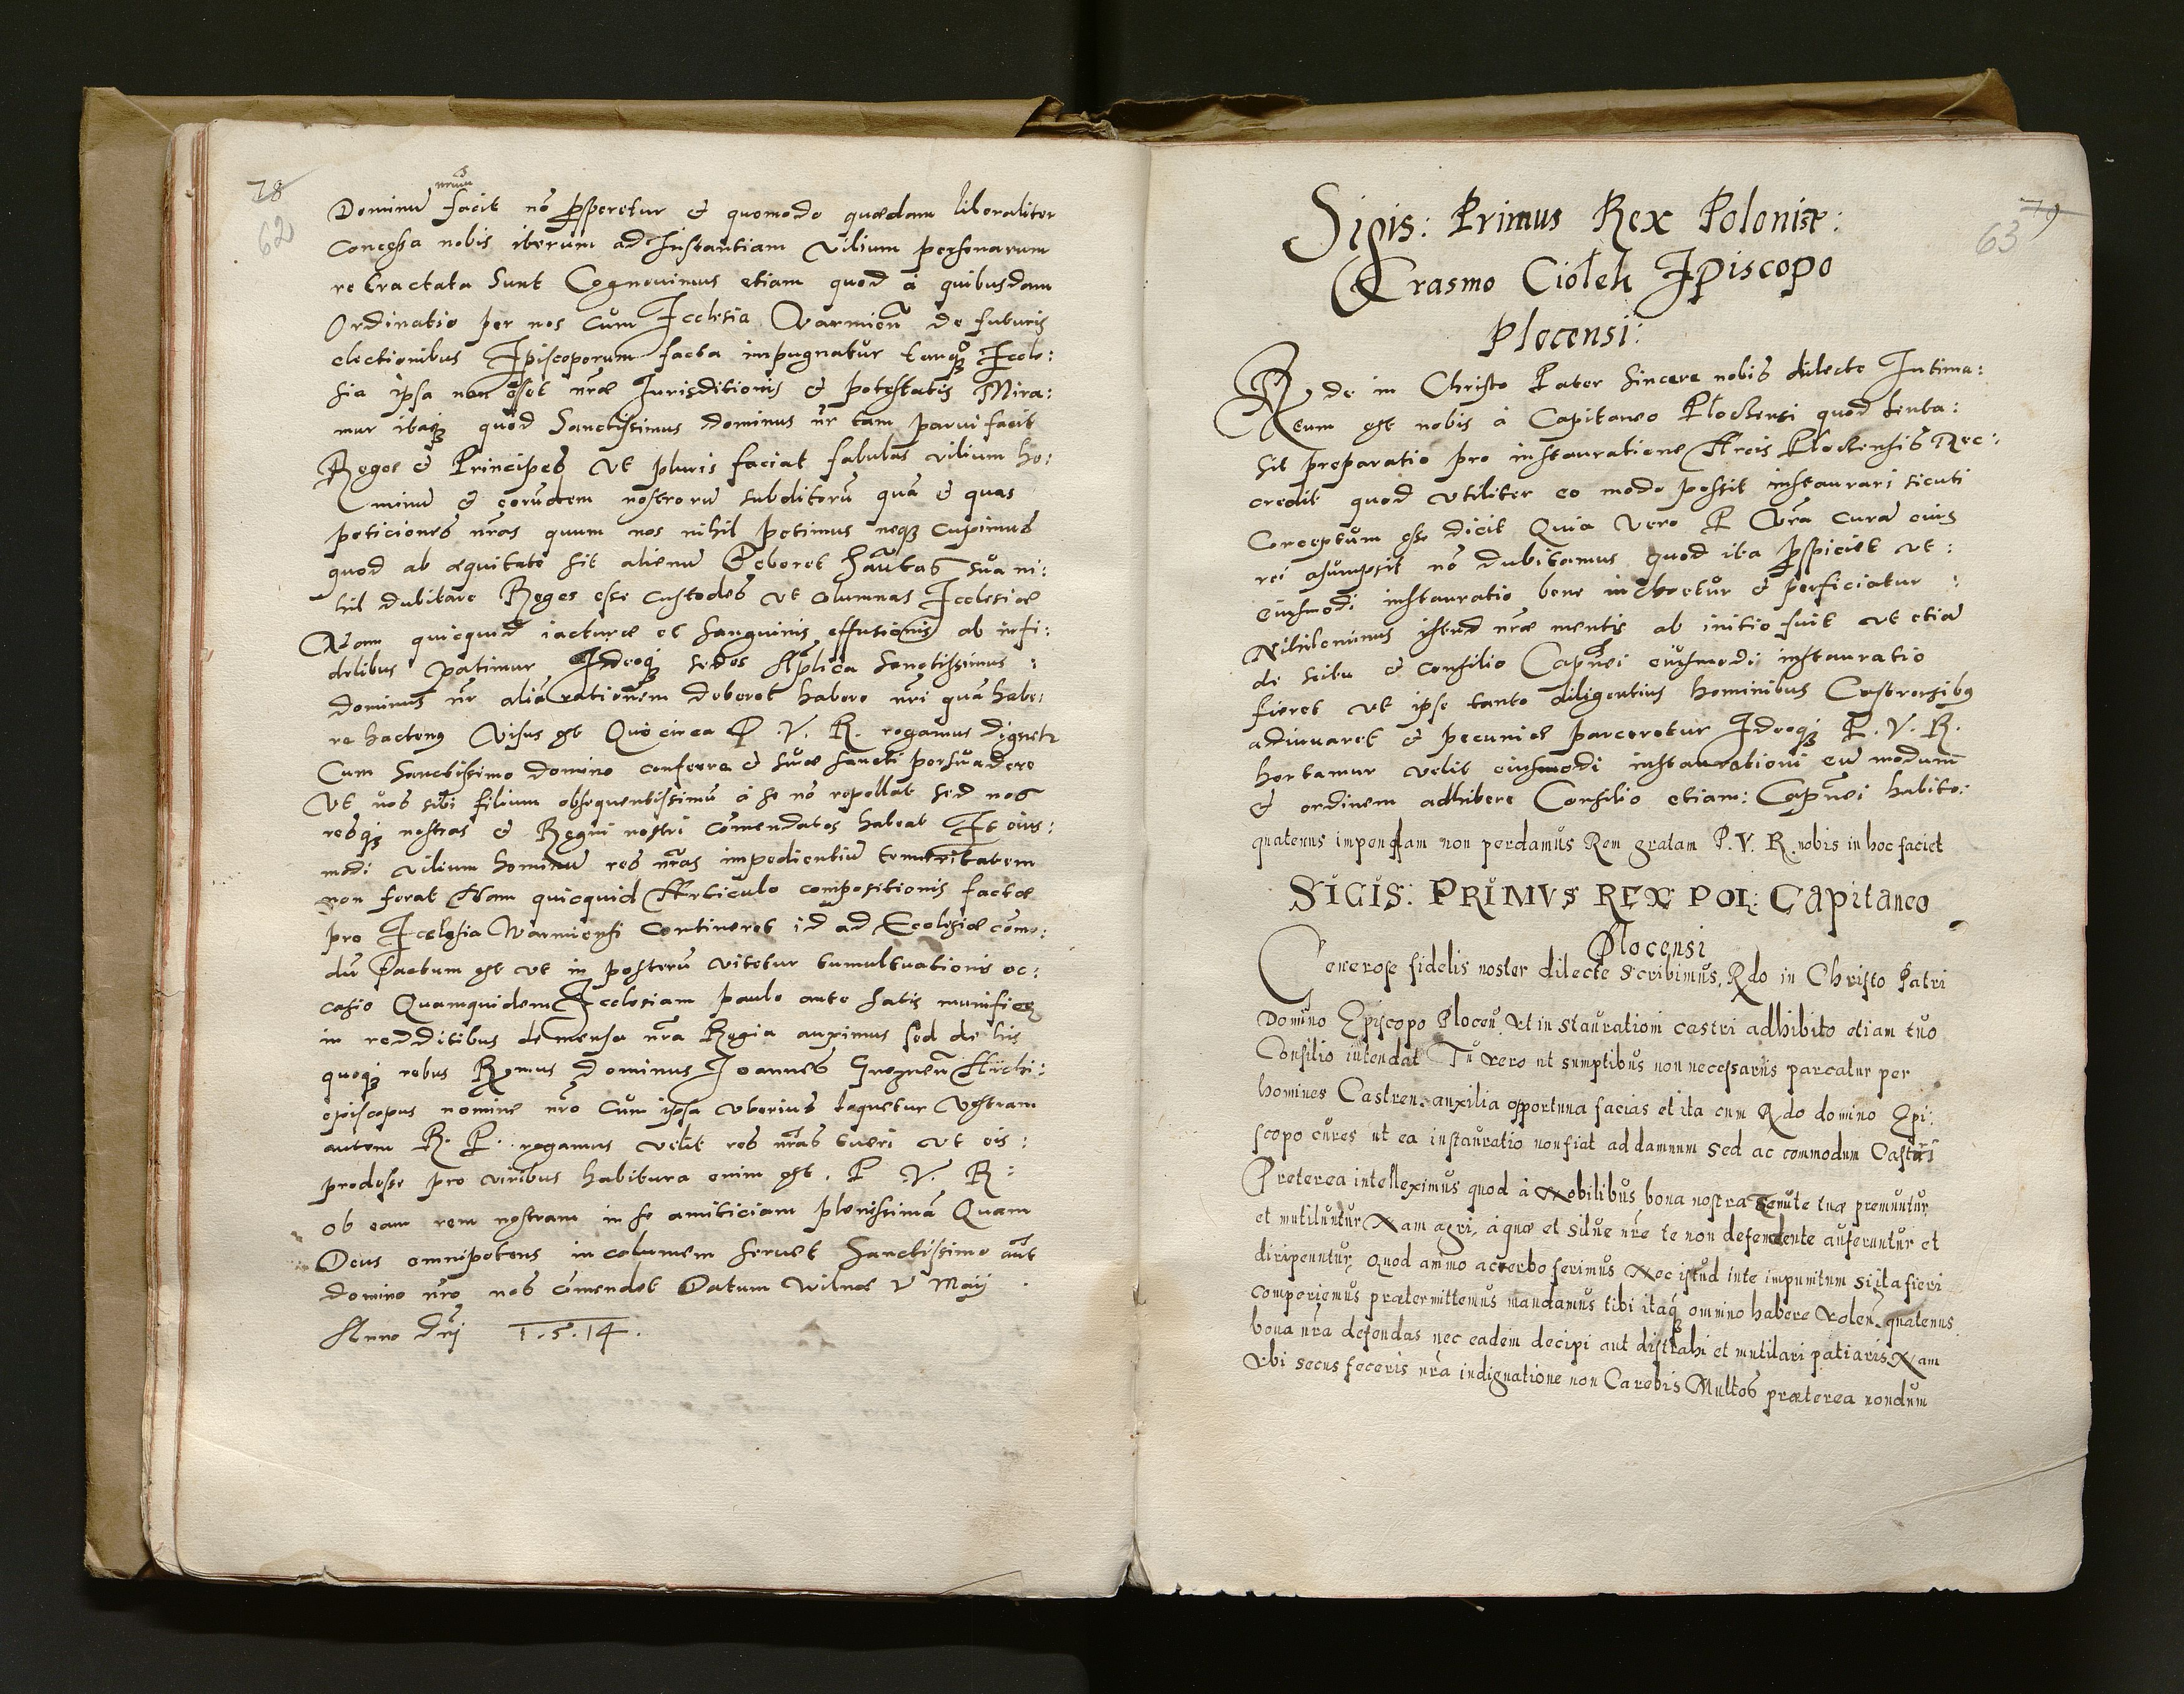 78
62
nrum
Dominu facit nō prosperetur & quomodo quædam liberaliter
concessa nobis iterum ad Instantiam vilium personarum
retractata sunt Cognovimus etiam quod à quibusdam
Ordinatio per nos cum Icclesia Varmieñ de futuris
electionibus Ipiscoporum facta impugnatur tanqȝ Iccle:
sia ipsa non esset nræ Jurisditionis & potestatis Mira:
mur itaqȝ quod Sanctissimus dominus nr̃ tam parui facit
Reges & Principes ut pluris faciat fabulas vilium ho:
minu & eorundem nostroru subditoru quā & quas
peticiones nr̃as quum nos nihil petimus neqȝ cupimus
quod ab æquitate sit alienu Deberet Sāctas sua ni:
hil dubitare Reges esse custodes ut columnas Icclesiæ
Nam quicquid iacturæ et sanguinis effusionis ab infi:
delibus patimur Ideoqȝ sedes Aplica Sanctissimus :
dominus nr̃ aliā rationem deberet habere nr̃i quā habe:
re hactenus visus est Quocirca P. V. R. rogamus dignetr
Cum sanctissimo domino conferre & suæ sancti persuadere
Ut nos sibi filium obsequentissimū à se nō repellat sed nos
resqȝ nostras & Regni nostri cōmendatos habeat Et eius:
modi vilium hominū res nr̃as impedientiū temeritatem
non ferat Nam quicquid Articulo compositionis factæ
pro Icclesia Warmiensi contineret id ad Ecclesiæ cōmo:
dū factum est ut in posterū vitetur tumultuationis oc:
casio Quamquidem Icclesiam paulo ante satis munifice
in redditibus de mensa nr̃a Regia auximus sed de his
quoqȝ rebus Rm̃us dominus Joannes Gneznen̄ Archi:
episcopus nomine nr̃o cum ipsa uberius loquetur Vestram
autem R. P. rogamus velit res nr̃as tueri ut eis :
prodesse pro viribus habitura enim est. P V. R :
ob eam rem nostram in se amiticiam plenissimā Quam
Deus omnipotens in columem servet Sanctissimo aūt
domino nr̃o nos cōmendet Datum Wilnæ V Maij .
Anno Dnj 1.5.14.
79
63
Sigis: Primus Rex Poloniæ:
Erasmo Ciolek Ipiscopo
Plocensi:
Rde in Christo Pater sincere nobis dilecte Intima:
tum est nobis à Capitaneo Plockensi quod tenta:
sit preparatio pro instauratione Arcis Plockensis Nec:
credit quod utiliter eo modo possit instaurari sicuti
Conceptum esse dicit Quia vero P Vr̃a curā eius
rei asumpsit nō dubitamus quod ita prospiciet ut :
eiusmodi instauratio bene inchoetur & perficiatur :
Nihilominus istud nræ mentis ab initio fuit ut etiā
de scitu & consilio Capnei eiusmodi instauratio
fieret ut ipse tanto diligentius hominibus Castrensibus
adiuvaret & pecuniæ parceretur Ideoqȝ P. V. R.
hortamur velit eiusmodi instaurationi eū modum
& ordinem adhibere Consilio etiam: Capnei habito:
quatenus impensam non perdamus Rem gratam P. V. R. nobis in hoc faciet
SIGIS: PRIMVS REX POL: Capitaneo
Plocensi
Generose fidelis noster dilecte Scribimus, Rdo in Christo Patri
Domino Episcopo Plocen̄. ut in staurationi castri adhibito etiam tuo
Consilio intendat Tu vero ut sumptibus non necessariis parcatur per
homines Castren. auxilia opportuna facias et ita cum Rdo domino Epi:
scopo cures ut ea instauratio non fiat ad damnum sed ac commodum Castri
Preterea intelleximus quod à Nobilibus bona nostra Tenute tuæ premuntur
et mutiluntur Nam agri, aquæ et silue nr̃e te non defendente auferuntur et
diripenntur, Quod animo acerbo ferimus Nec istud inte impunitum si ita fieri
comperiemus prætermittemus mandamus tibi itaqȝ omnino habere volen̄. quatenus
bona nr̃a defendas nec eadem decipi aut distrahi et mutilari patiaris Nam
Vbi secus feceris nr̃a indignatione non Carebis Multos præterea nondum